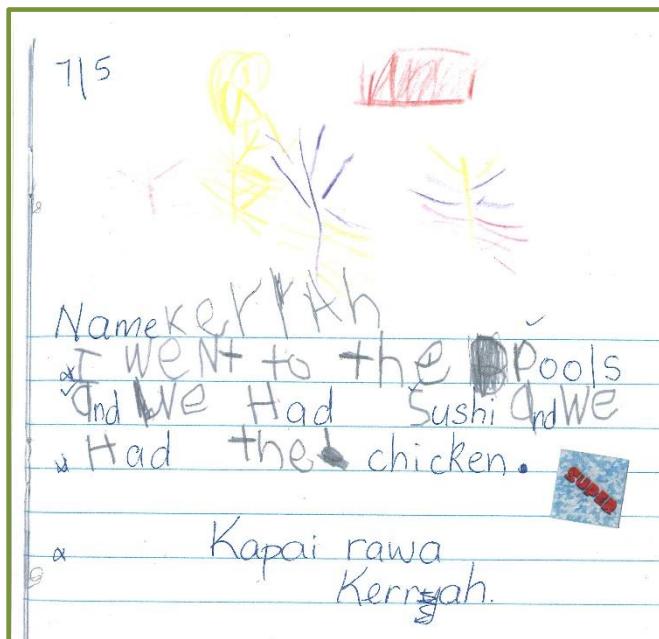 7/5
Name kerrah
I weNt to the Pools
and we Had Sushi and we
Had the chicken.
SUPER
Kapai rawa
Kerryah.